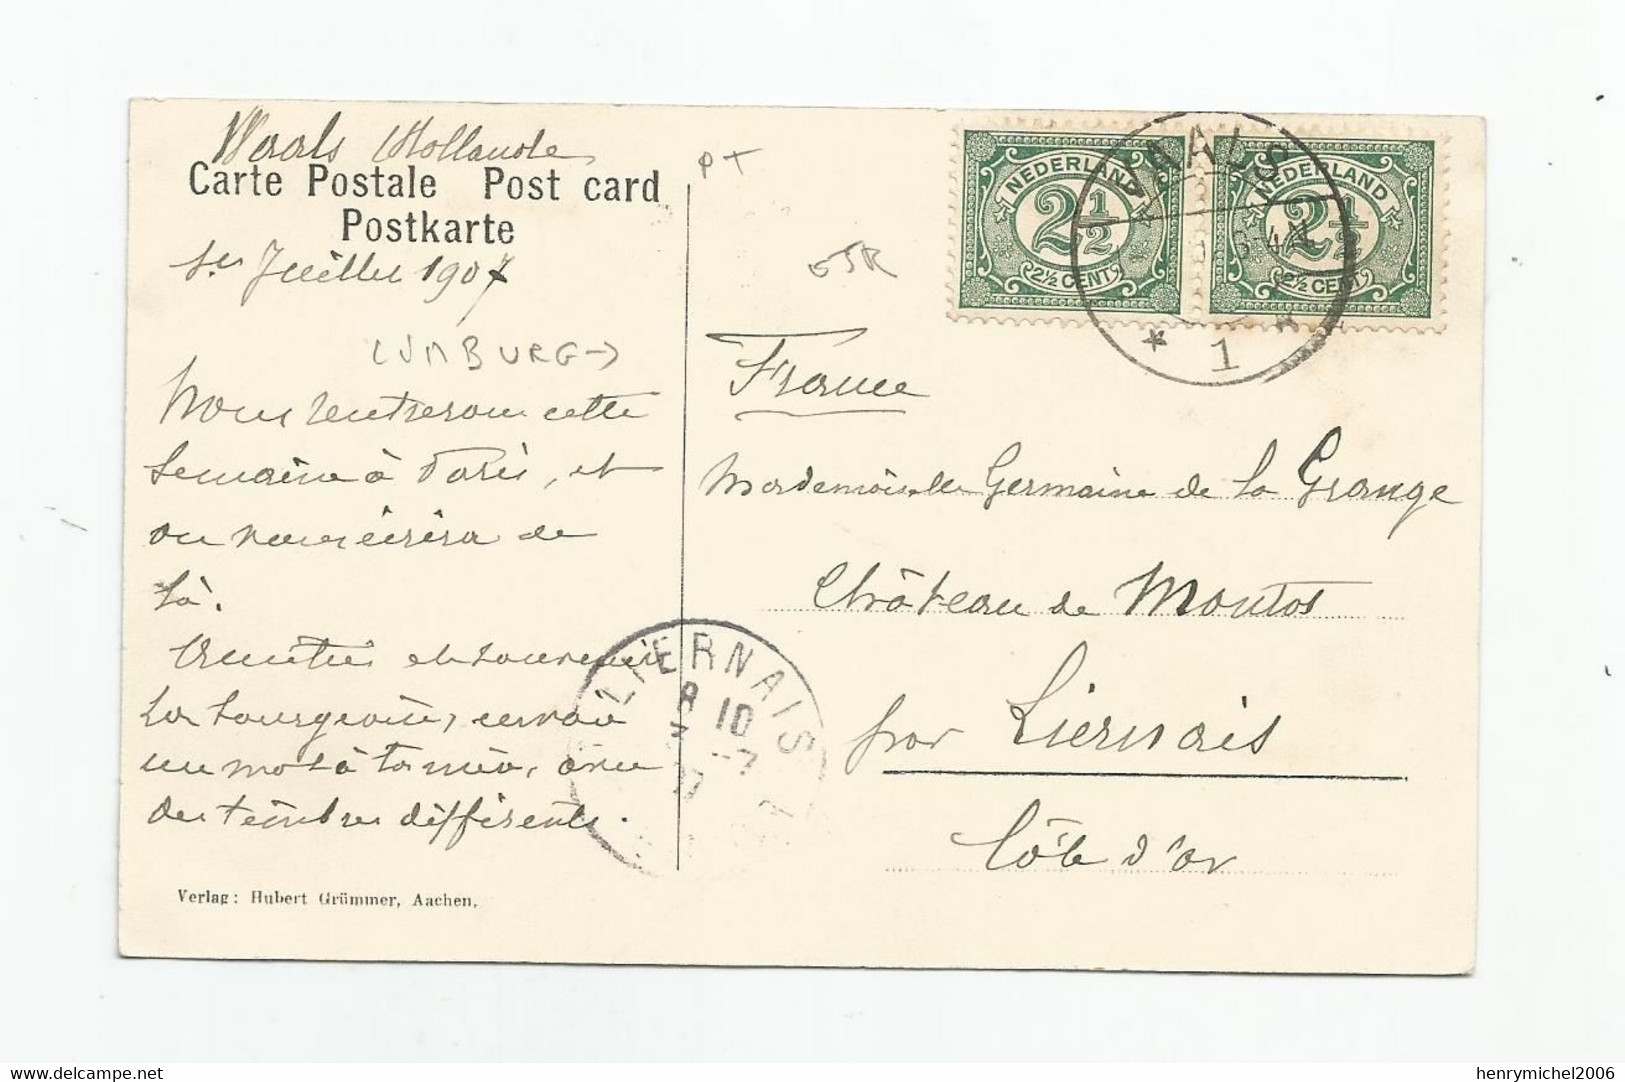 Vaals Hollande
Carte Postale Post card
Postkarte
1er Juillet 1907
LIMBURG →
Nous rentrerons cette
semaine à Paris, et
on vous écrira de
là.
Amitiés et souvenirs
La bourgeoise, envoie
un mot à ta mère, avec
des timbres différents.
Verlag: Hubert Grümmer, Aachen.
PT
65R
NEDERLAND
2 1/2
2½ CENT
NEDERLAND
2 1/2
2½ CENT
VAALS
3-4N
* 1 *
France
Mademoiselle Germaine de La Grange
Château de Montot
par Liernais
Côte d'or
LIERNAIS
8 10
3 -7
07
henrymichel2006